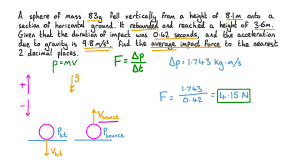 A sphere of mass 83g fell vertically from a height of 8.1m onto a
section of horizontal ground. It rebounded and reached a height of 3.6m.
Given that the duration of impact was 0.42 seconds, and the acceleration
due to gravity is 9.8 m/s², find the average impact force to the nearest
2 decimal places.
p = mv
F = Δp/Δt
Δp = 1.743 kg·m/s
+
g
-
F = 1.743/0.42 = 4.15 N
V bounce
P hit
P bounce
V hit